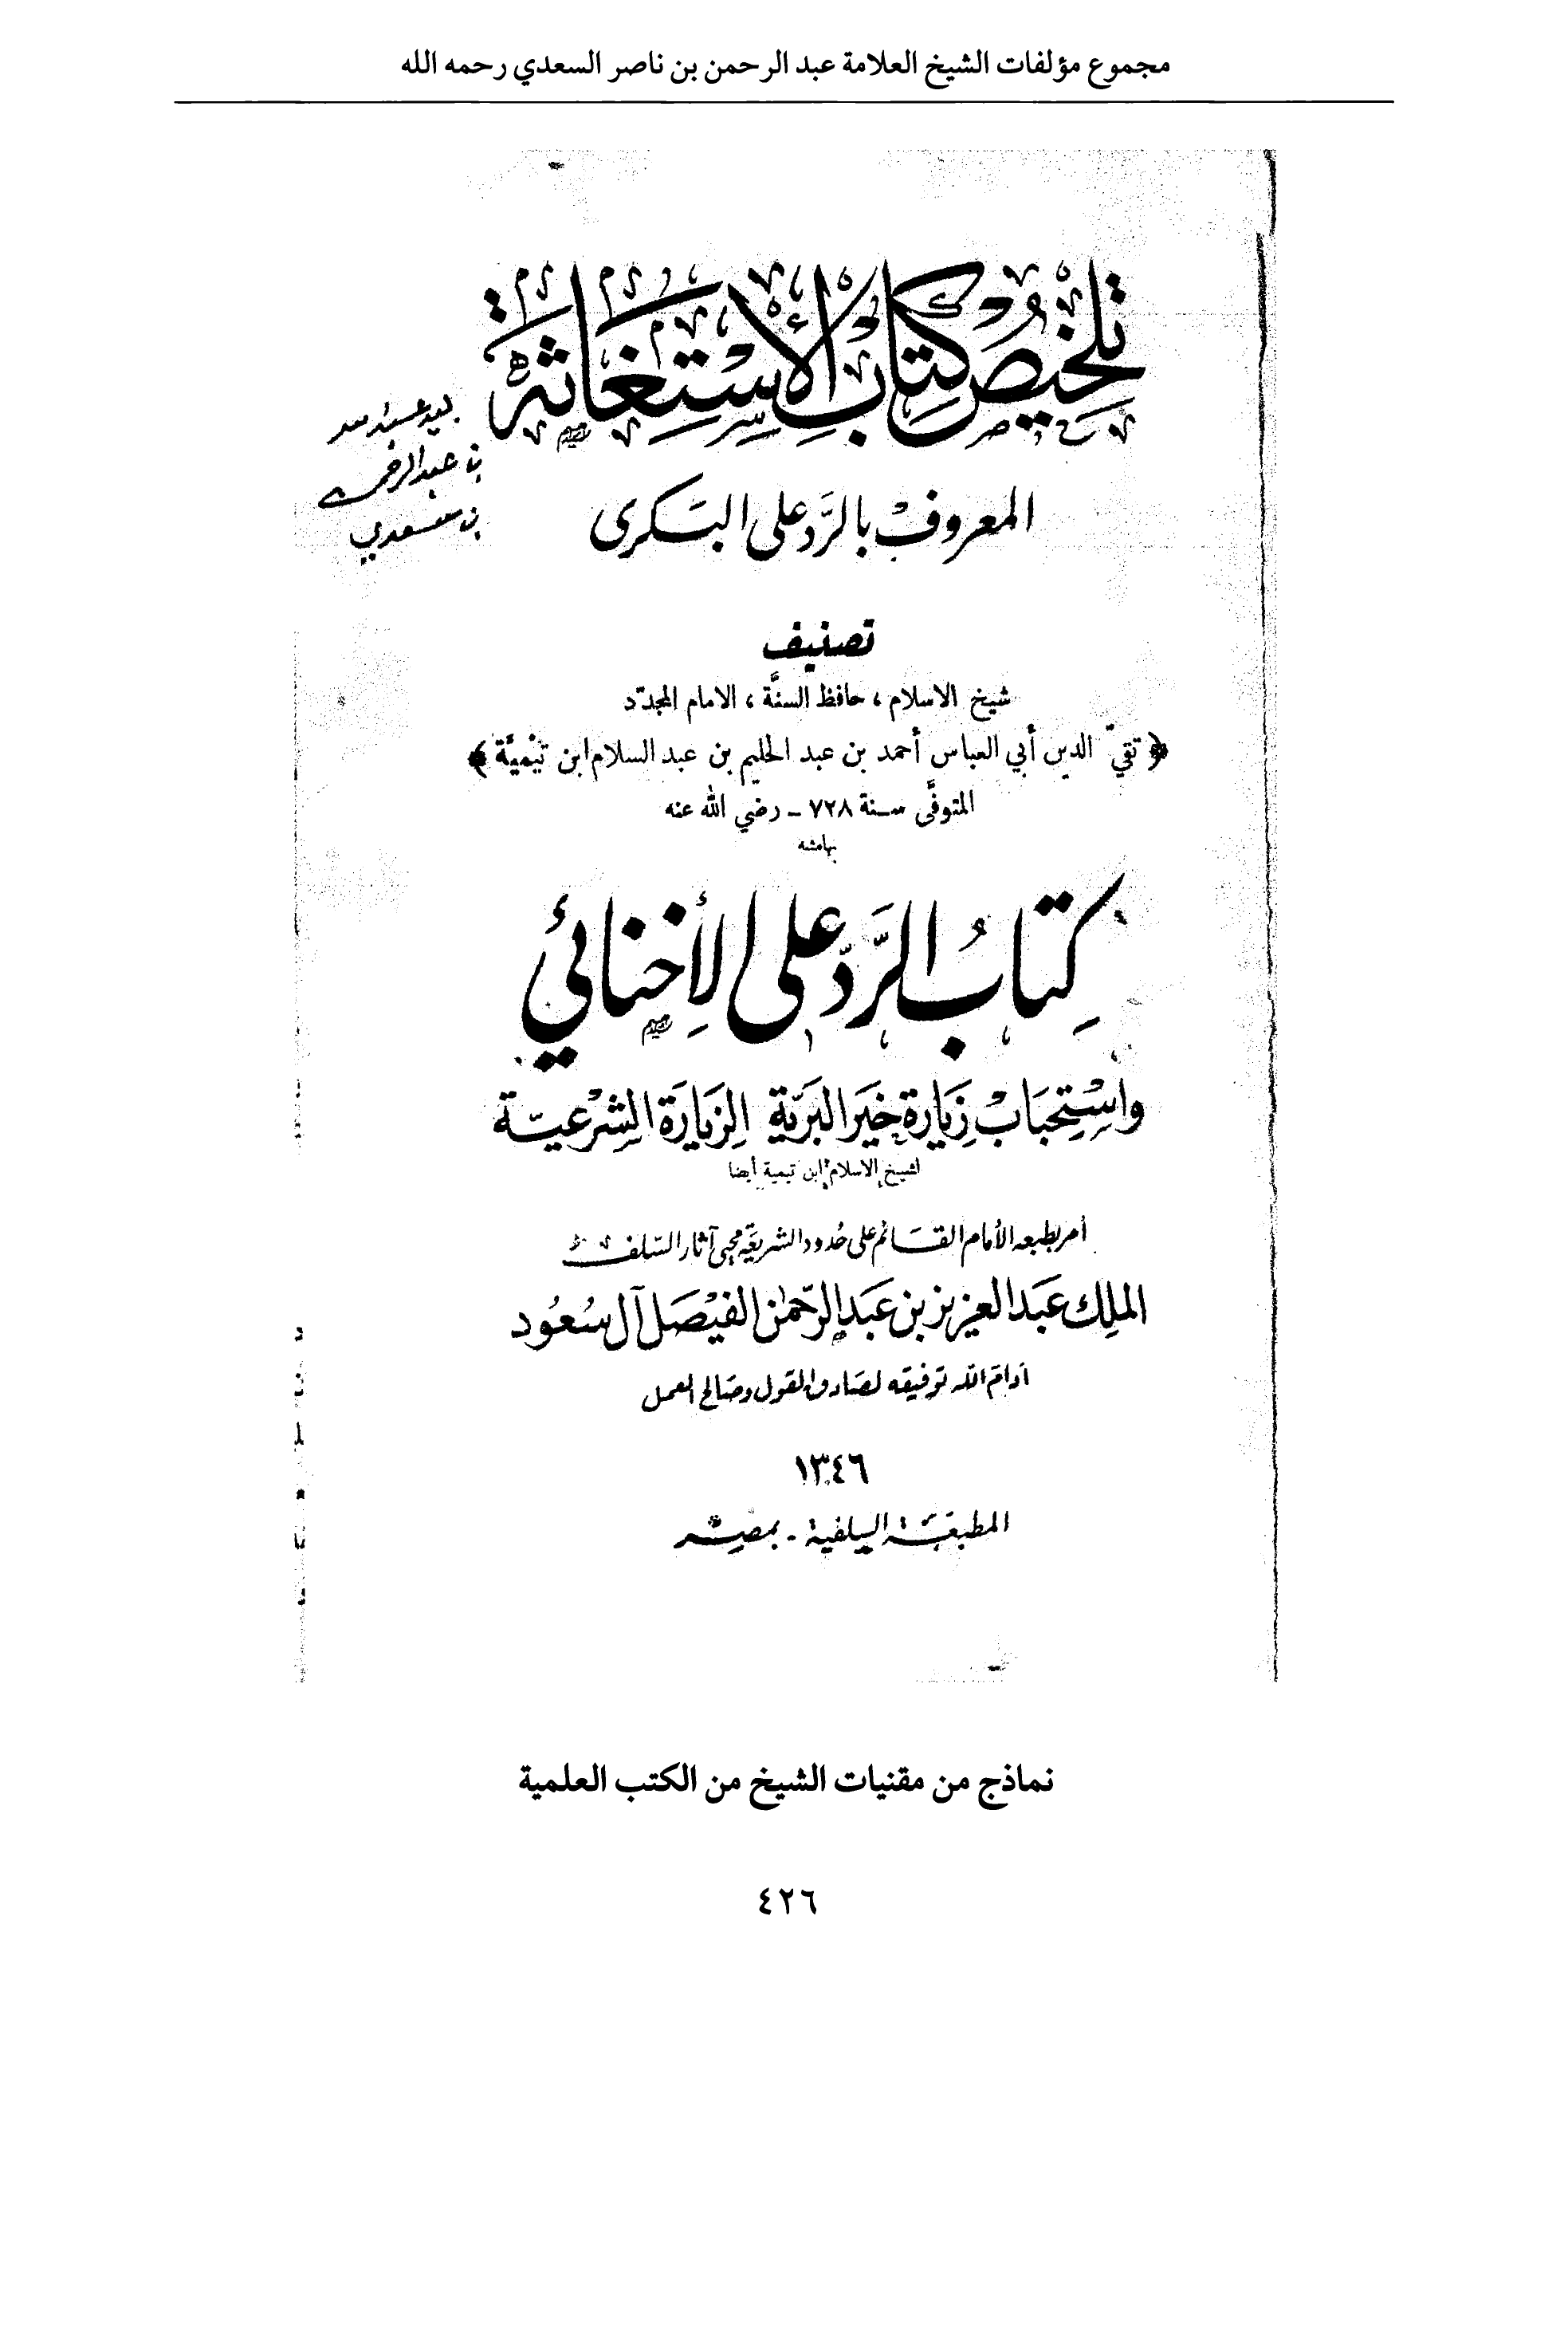 مجموع مؤلفات الشيخ العلامة عبد الرحمن بن ناصر السعدي رحمه الله
تلخيص كتاب الاستغاثة
بيد عبد الله
بن عبد الرحمن
بن سعدي
المعروف بالرد على البكرى
تصنيف
شيخ الاسلام ، حافظ السنَّة ، الامام المجدّد
﴿ تقيّ الدين أبي العباس أحمد بن عبد الحليم بن عبد السلام ابن تيْميَّة ﴾
المتوفَّى سنة ٧٢٨ ـ رضي الله عنه
بهامشه
كِتابُ الرَّدّ على الأِخنائي
واسْتِحبَابْ زِيَارة خيَر البَريّة الزيَارَة الشِرْعيّة
لشيخ الاسلام ابن تيمية أيضا
أمر بطبعه الأمام القائم على حُدود الشريعَة محيى آثار السّلف
الملِك عَبد العزيز بن عَبد الرّحمٰن الفيْصَل آل سُعُود
أدامَ الله توفيقه لصَادق القول وصَالح العمل
١٣٤٦
المطبعَة السِلفية - بمصر
نماذج من مقنيات الشيخ من الكتب العلمية
٤٢٦